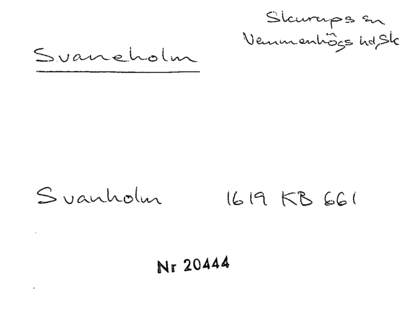 Skurups sn
Vemmenhögs hd, Sk
Svaneholm
Svanholm 1619 KB 661
Nr 20444